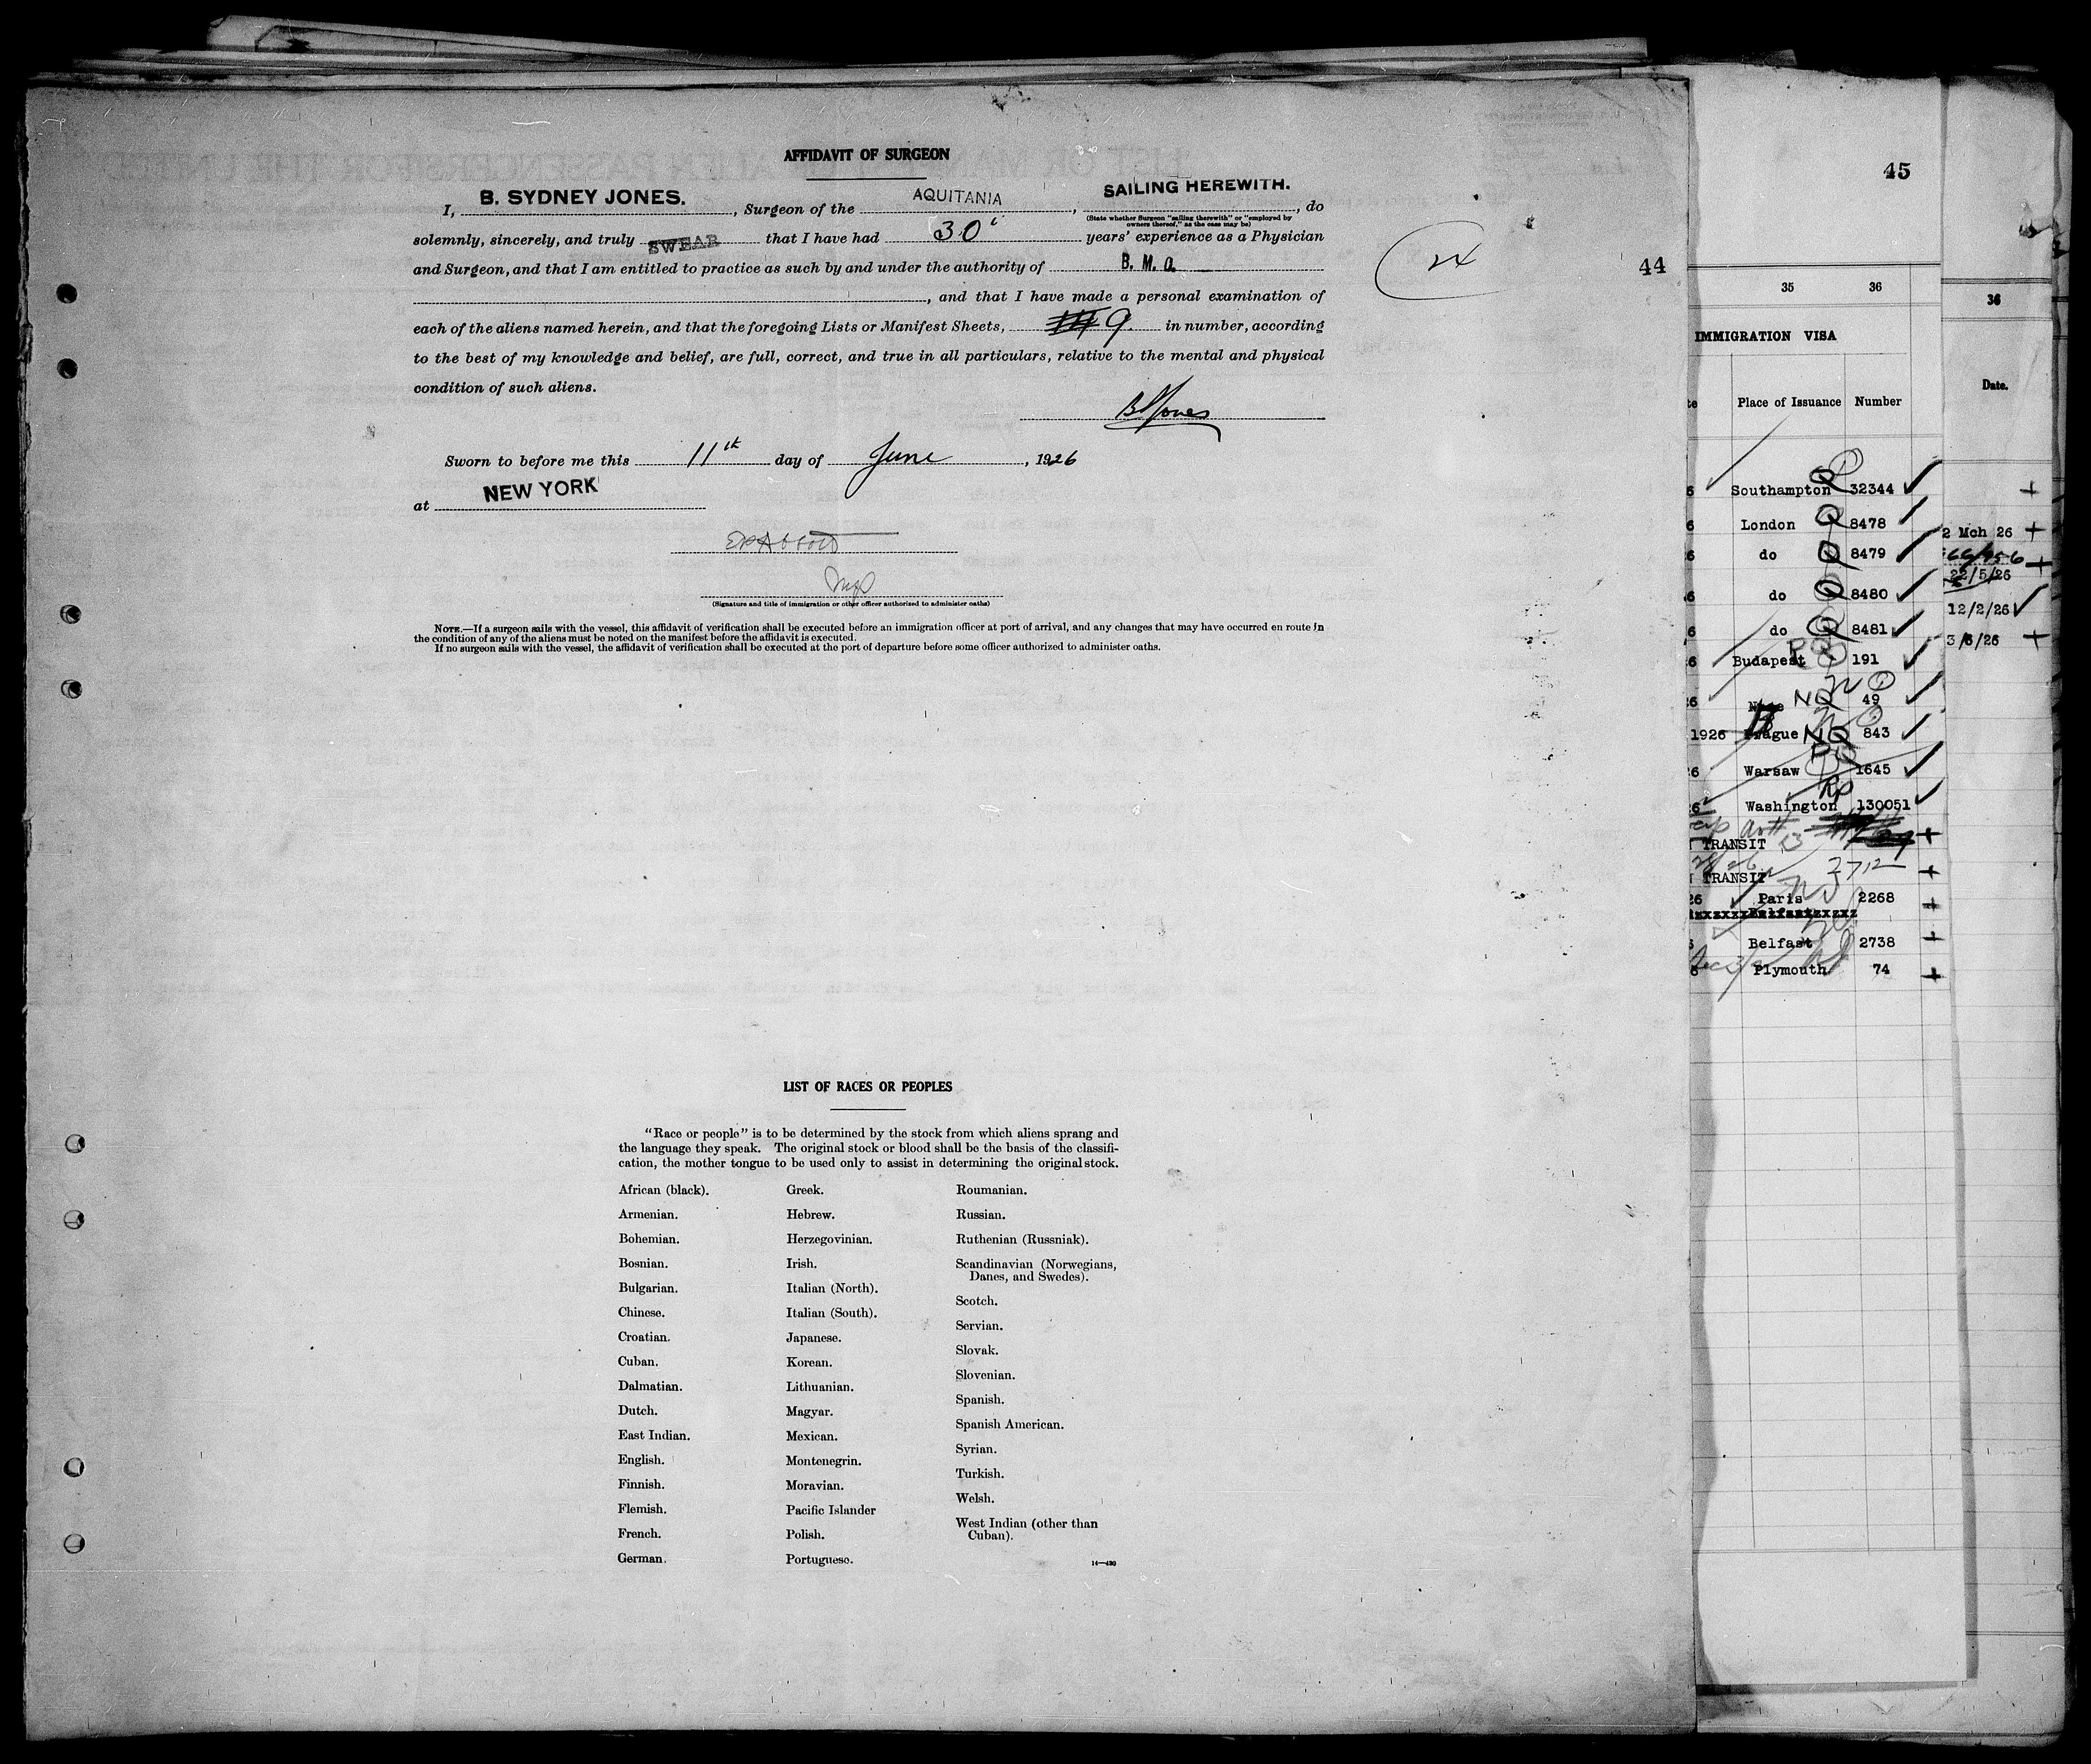 AFFIDAVIT OF SURGEON
I, B. SYDNEY JONES. , Surgeon of the AQUITANIA , SAILING HEREWITH. , do
(State whether Surgeon "sailing therewith" or "employed by
owners thereof," as the case may be)
solemnly, sincerely, and truly SWEAR that I have had 30 years' experience as a Physician
and Surgeon, and that I am entitled to practice as such by and under the authority of B. M. O.
, and that I have made a personal examination of
each of the aliens named herein, and that the foregoing Lists or Manifest Sheets, 9. in number, according
to the best of my knowledge and belief, are full, correct, and true in all particulars, relative to the mental and physical
condition of such aliens.
BSJones
Sworn to before me this 11th day of June , 1926
at NEW YORK
(Signature and title of immigration or other officer authorized to administer oaths)
NOTE.—If a surgeon sails with the vessel, this affidavit of verification shall be executed before an immigration officer at port of arrival, and any changes that may have occurred en route in
the condition of any of the aliens must be noted on the manifest before the affidavit is executed.
If no surgeon sails with the vessel, the affidavit of verification shall be executed at the port of departure before some officer authorized to administer oaths.
44
LIST OF RACES OR PEOPLES
"Race or people" is to be determined by the stock from which aliens sprang and
the language they speak. The original stock or blood shall be the basis of the classifi-
cation, the mother tongue to be used only to assist in determining the original stock.
African (black).
Armenian.
Bohemian.
Bosnian.
Bulgarian.
Chinese.
Croatian.
Cuban.
Dalmatian.
Dutch.
East Indian.
English.
Finnish.
Flemish.
French.
German.
Greek.
Hebrew.
Herzegovinian.
Irish.
Italian (North).
Italian (South).
Japanese.
Korean.
Lithuanian.
Magyar.
Mexican.
Montenegrin.
Moravian.
Pacific Islander
Polish.
Portuguese.
Roumanian.
Russian.
Ruthenian (Russniak).
Scandinavian (Norwegians,
Danes, and Swedes).
Scotch.
Servian.
Slovak.
Slovenian.
Spanish.
Spanish American.
Syrian.
Turkish.
Welsh.
West Indian (other than
Cuban).
14—430
45
35 36
IMMIGRATION VISA
Place of Issuance Number
Southampton Q 32344
London Q 8478
do Q 8479
do Q 8480
do Q 8481
Budapest 191
NQ 49
1926 Prague NQ 843
Warsaw 1645
Washington 130051
TRANSIT
TRANSIT 2712
Paris 2268
Belfast 2738
Plymouth 74
36
Date.
2 Mch 26
22/5/26
12/2/26
3/6/26